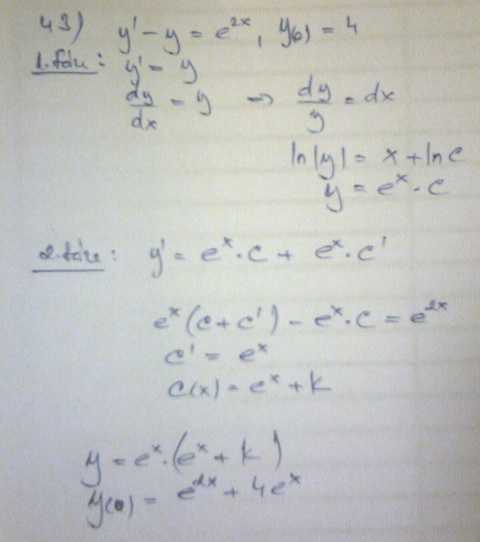 43) y' - y = e^{2x}, y(0) = 4
1. fáze: y' = y
dy/dx = y → dy/y = dx
ln|y| = x + ln c
y = e^x · c
2. fáze: y' = e^x · c + e^x · c'
e^x (c + c') - e^x · c = e^{2x}
c' = e^x
c(x) = e^x + k
y = e^x · (e^x + k)
y(0) = e^{2x} + 4e^x